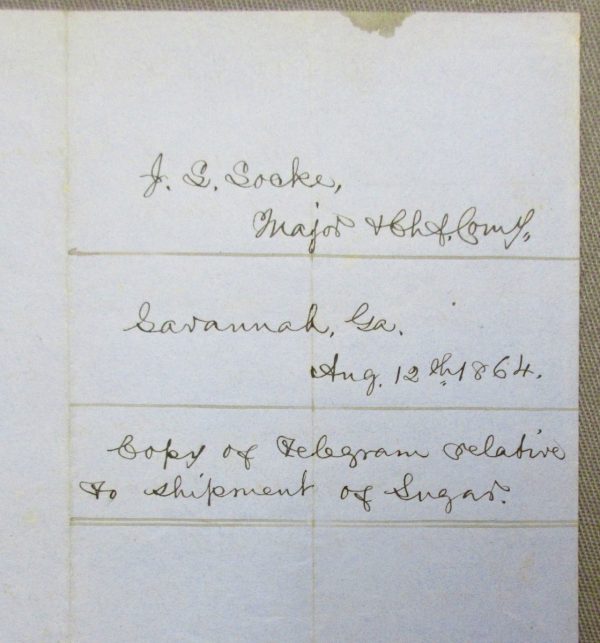 J. L. Locke,
Major & Chf. Comy.,
Savannah, Ga.
Aug. 12th 1864.
Copy of telegram relative
to shipment of Sugar.